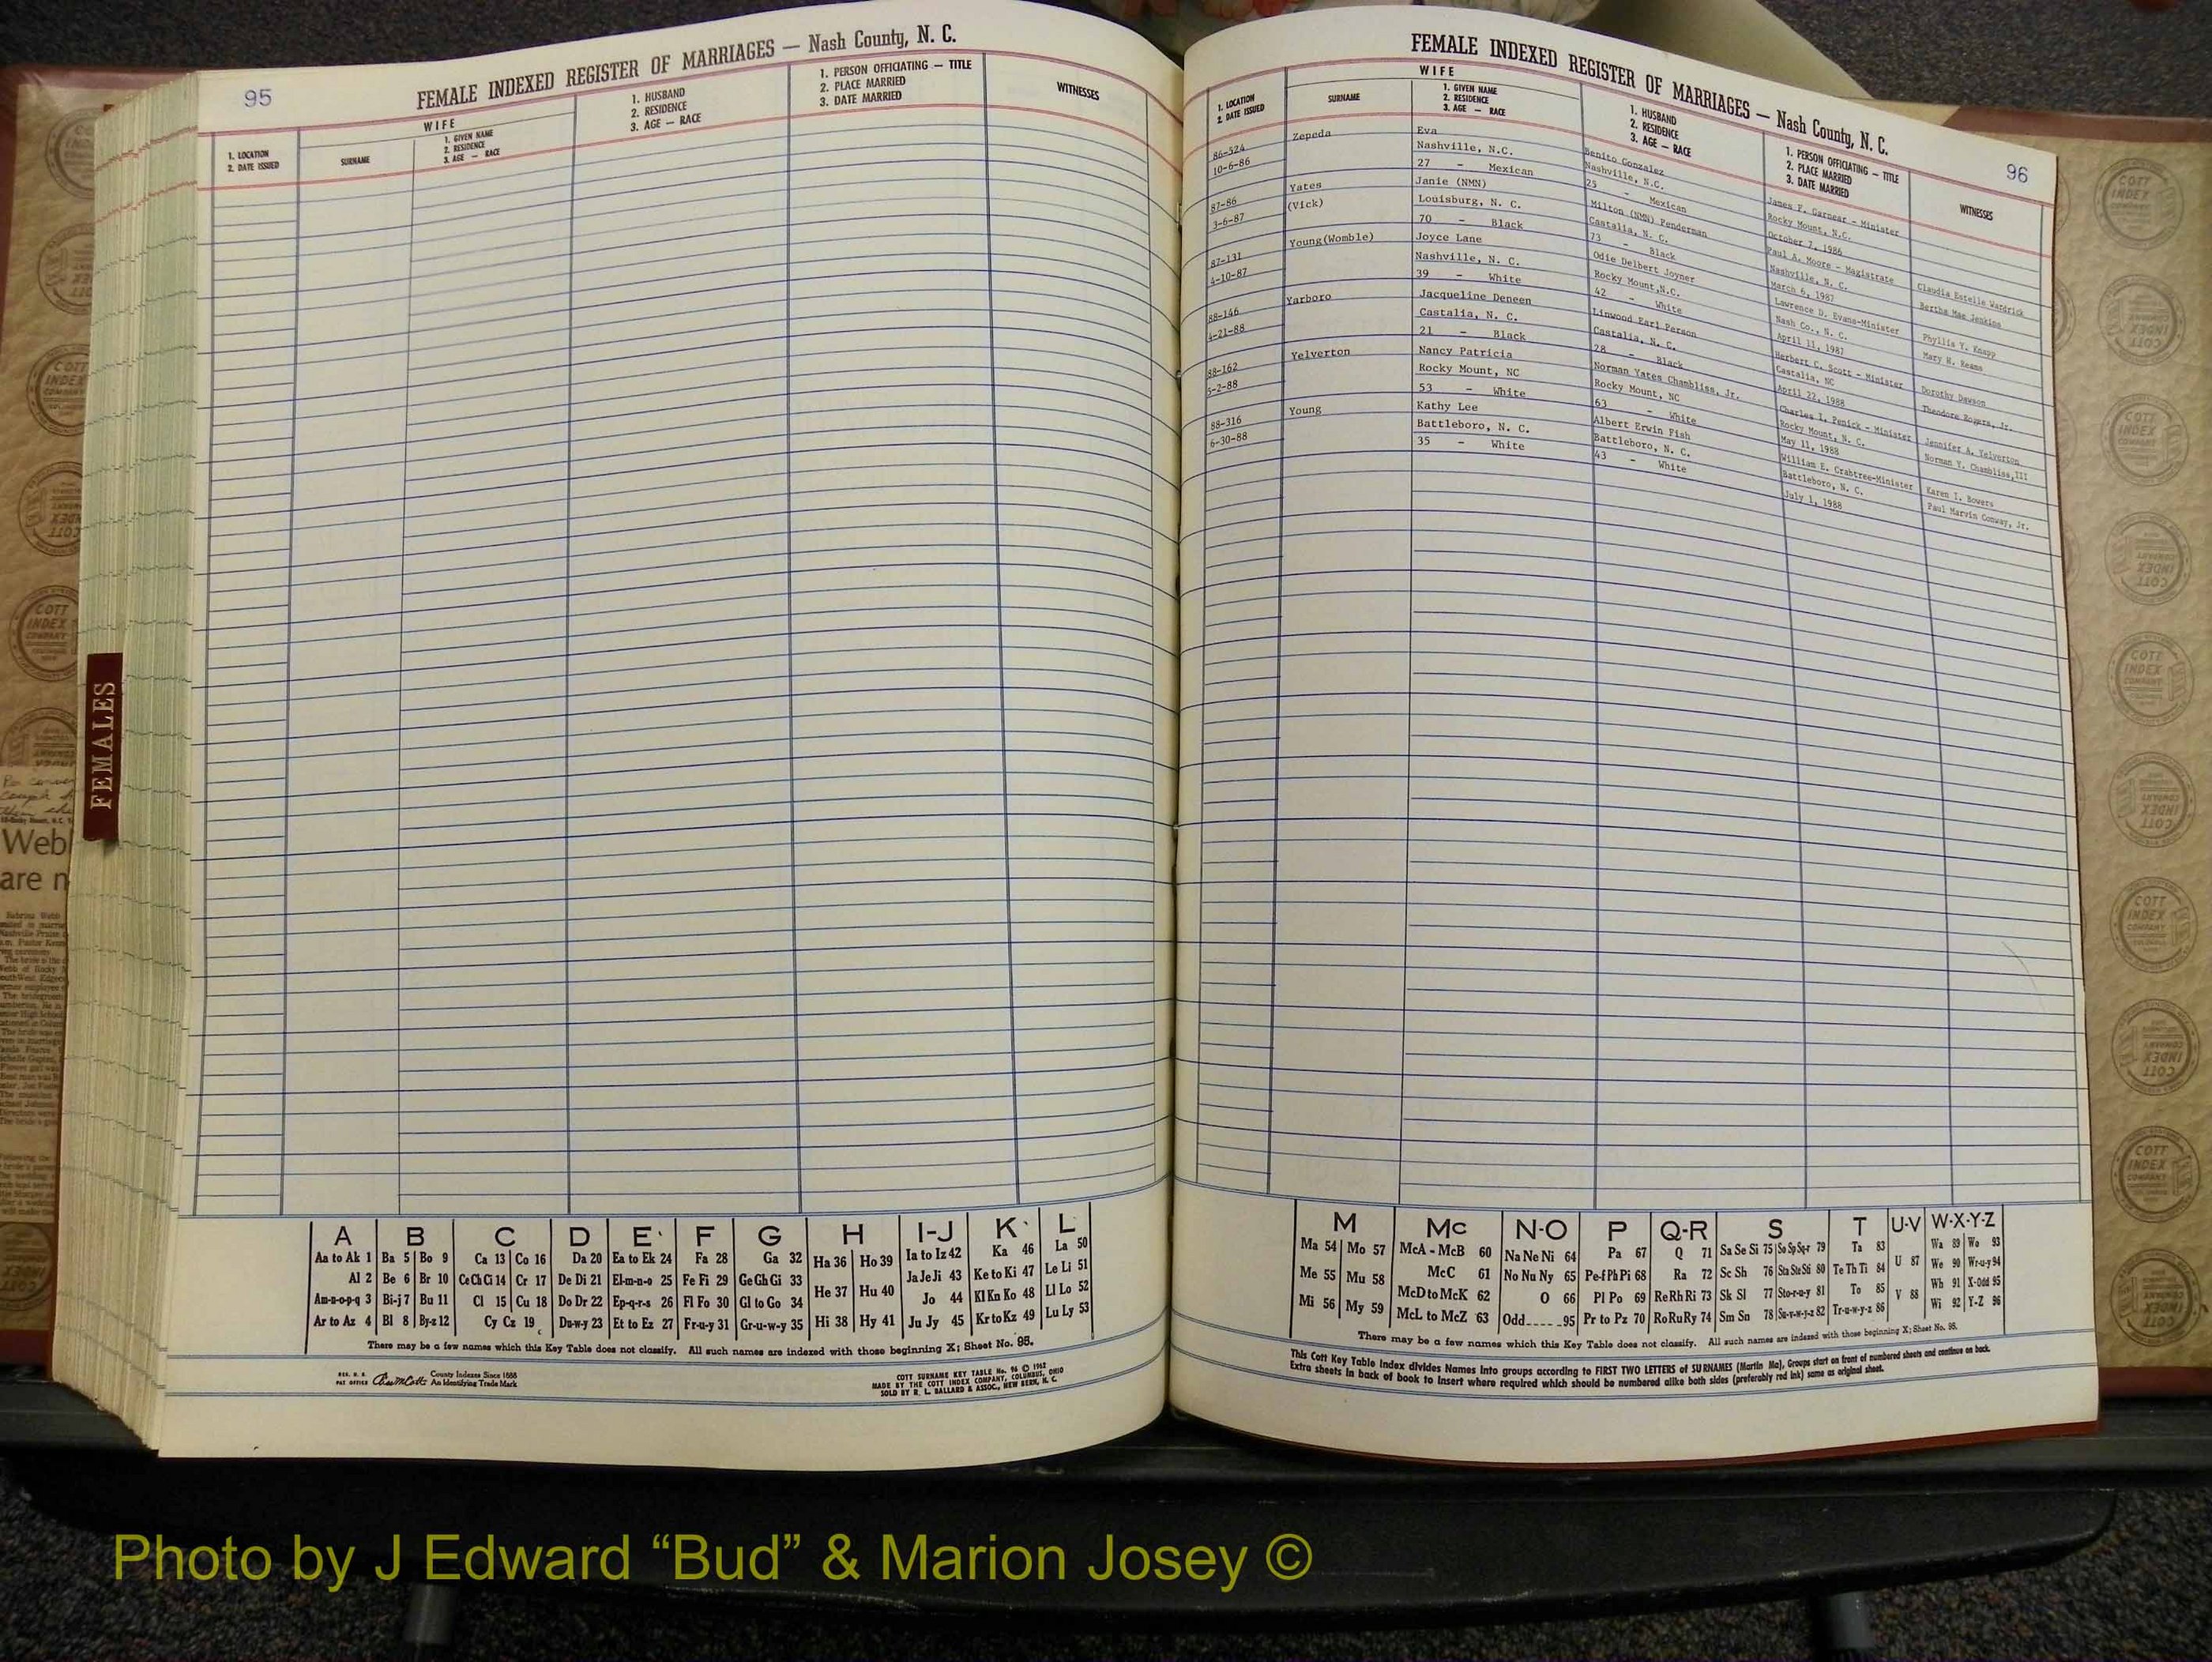 95
FEMALE INDEXED REGISTER OF MARRIAGES — Nash County, N. C.
1. LOCATION
2. DATE ISSUED
WIFE
SURNAME
1. GIVEN NAME
2. RESIDENCE
3. AGE — RACE
1. HUSBAND
2. RESIDENCE
3. AGE — RACE
1. PERSON OFFICIATING — TITLE
2. PLACE MARRIED
3. DATE MARRIED
WITNESSES
FEMALES
A B C D E F G H I-J K L
Aa to Ak 1 Ba 5 Bo 9 Ca 13 Co 16 Da 20 Ea to Ek 24 Fa 28 Ga 32 Ha 36 Ho 39 Ia to Iz 42 Ka 46 La 50
Al 2 Be 6 Br 10 Ce Ch Ci 14 Cr 17 De Di 21 El-m-n-o 25 Fe Fi 29 Ge Gh Gi 33 He 37 Hu 40 Ja Je Ji 43 Ke to Ki 47 Le Li 51
Am-n-o-p-q 3 Bi-j 7 Bu 11 Cl 15 Cu 18 Do Dr 22 Ep-q-r-s 26 Fl Fo 30 Gl to Go 34 Hi 38 Hy 41 Jo 44 Kl Kn Ko 48 Ll Lo 52
Ar to Az 4 Bl 8 By-z 12 Cy Cz 19 Du-w-y 23 Et to Ez 27 Fr-u-y 31 Gr-u-w-y 35 Ju Jy 45 Kr to Kz 49 Lu Ly 53
There may be a few names which this Key Table does not classify. All such names are indexed with those beginning X; Sheet No. 95.
REG. U. S.
PAT OFFICE
County Indexes Since 1888
An Identifying Trade Mark
COTT SURNAME KEY TABLE No. 96 © 1962
MADE BY THE COTT INDEX COMPANY, COLUMBUS, OHIO
SOLD BY R. L. BALLARD & ASSOC., NEW BERN, N. C.
FEMALE INDEXED REGISTER OF MARRIAGES — Nash County, N. C.
96
1. LOCATION
2. DATE ISSUED
WIFE
SURNAME
1. GIVEN NAME
2. RESIDENCE
3. AGE — RACE
1. HUSBAND
2. RESIDENCE
3. AGE — RACE
1. PERSON OFFICIATING — TITLE
2. PLACE MARRIED
3. DATE MARRIED
WITNESSES
86-524 Zepeda Eva Benito Gonzalez James F. Garnear - Minister
10-6-86 Nashville, N.C. Nashville, N.C. Rocky Mount, N.C.
27 - Mexican 25 - Mexican October 7, 1986
87-86 Yates Janie (NMN) Milton (NMN) Penderman Paul A. Moore - Magistrate Claudia Estelle Wardrick
3-6-87 (Vick) Louisburg, N. C. Castalia, N. C. Nashville, N. C. Bertha Mae Jenkins
70 - Black 73 - Black March 6, 1987
87-131 Young(Womble) Joyce Lane Odie Delbert Joyner Lawrence D. Evans-Minister Phyllis Y. Knapp
4-10-87 Nashville, N. C. Rocky Mount,N.C. Nash Co., N. C. Mary H. Reams
39 - White 42 - White April 11, 1987
88-146 Yarboro Jacqueline Deneen Linwood Earl Person Herbert C. Scott - Minister Dorothy Dawson
4-21-88 Castalia, N. C. Castalia, N. C. Castalia, NC Theodore Rogers, Jr.
21 - Black 28 - Black April 22, 1988
88-162 Yelverton Nancy Patricia Norman Yates Chambliss, Jr. Charles I. Penick - Minister Jennifer A. Yelverton
5-2-88 Rocky Mount, NC Rocky Mount, NC Rocky Mount, N. C. Norman Y. Chambliss,III
53 - White 63 - White May 11, 1988
88-316 Young Kathy Lee Albert Erwin Fish William E. Crabtree-Minister Karen I. Bowers
6-30-88 Battleboro, N. C. Battleboro, N. C. Battleboro, N. C. Paul Marvin Conway, Jr.
35 - White 43 - White July 1, 1988
M Mc N-O P Q-R S T U-V W-X-Y-Z
Ma 54 Mo 57 McA - McB 60 Na Ne Ni 64 Pa 67 Q 71 Sa Se Si 75 So Sp Sq-r 79 Ta 83 U 87 Wa 89 Wo 93
Me 55 Mu 58 McC 61 No Nu Ny 65 Pe-f Ph Pi 68 Ra 72 Sc Sh 76 Sta Ste Sti 80 Te Th Ti 84 V 88 We 90 Wr-u-y 94
Mi 56 My 59 McD to McK 62 O 66 Pl Po 69 Re Rh Ri 73 Sk Sl 77 Sto-r-u-y 81 To 85 Wh 91 X-Odd 95
McL to McZ 63 Odd 95 Pr to Pz 70 Ro Ru Ry 74 Sm Sn 78 Su-v-w-y-z 82 Tr-u-w-y-z 86 Wi 92 Y-Z 96
There may be a few names which this Key Table does not classify. All such names are indexed with those beginning X; Sheet No. 95.
This Cott Key Table Index divides Names into groups according to FIRST TWO LETTERS of SURNAMES (Martin Ma), Groups start on front of numbered sheets and continue on back.
Extra sheets in back of book to insert where required which should be numbered alike both sides (preferably red ink) same as original sheet.
Webb
are n
COTT INDEX COMPANY
Photo by J Edward “Bud” & Marion Josey ©